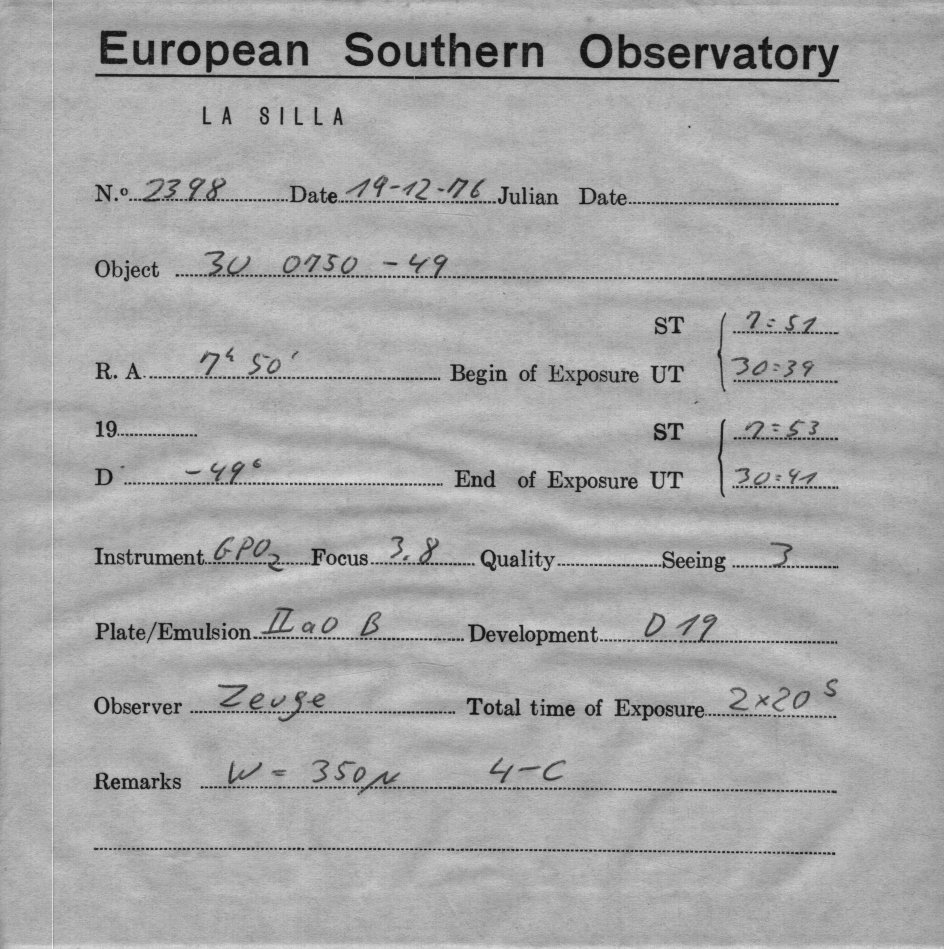 European Southern Observatory
LA SILLA
N.º 2398 Date 19-12-76 Julian Date
Object 3U 0750 -49
ST 7:51
R. A. 7h 50' Begin of Exposure UT 30:39
19 ST 7:53
D -49° End of Exposure UT 30:41
Instrument GPO2 Focus 3.8 Quality Seeing 3
Plate/Emulsion IIaO B Development D 19
Observer Zeuge Total time of Exposure 2×20 s
Remarks W = 350μ 4-C